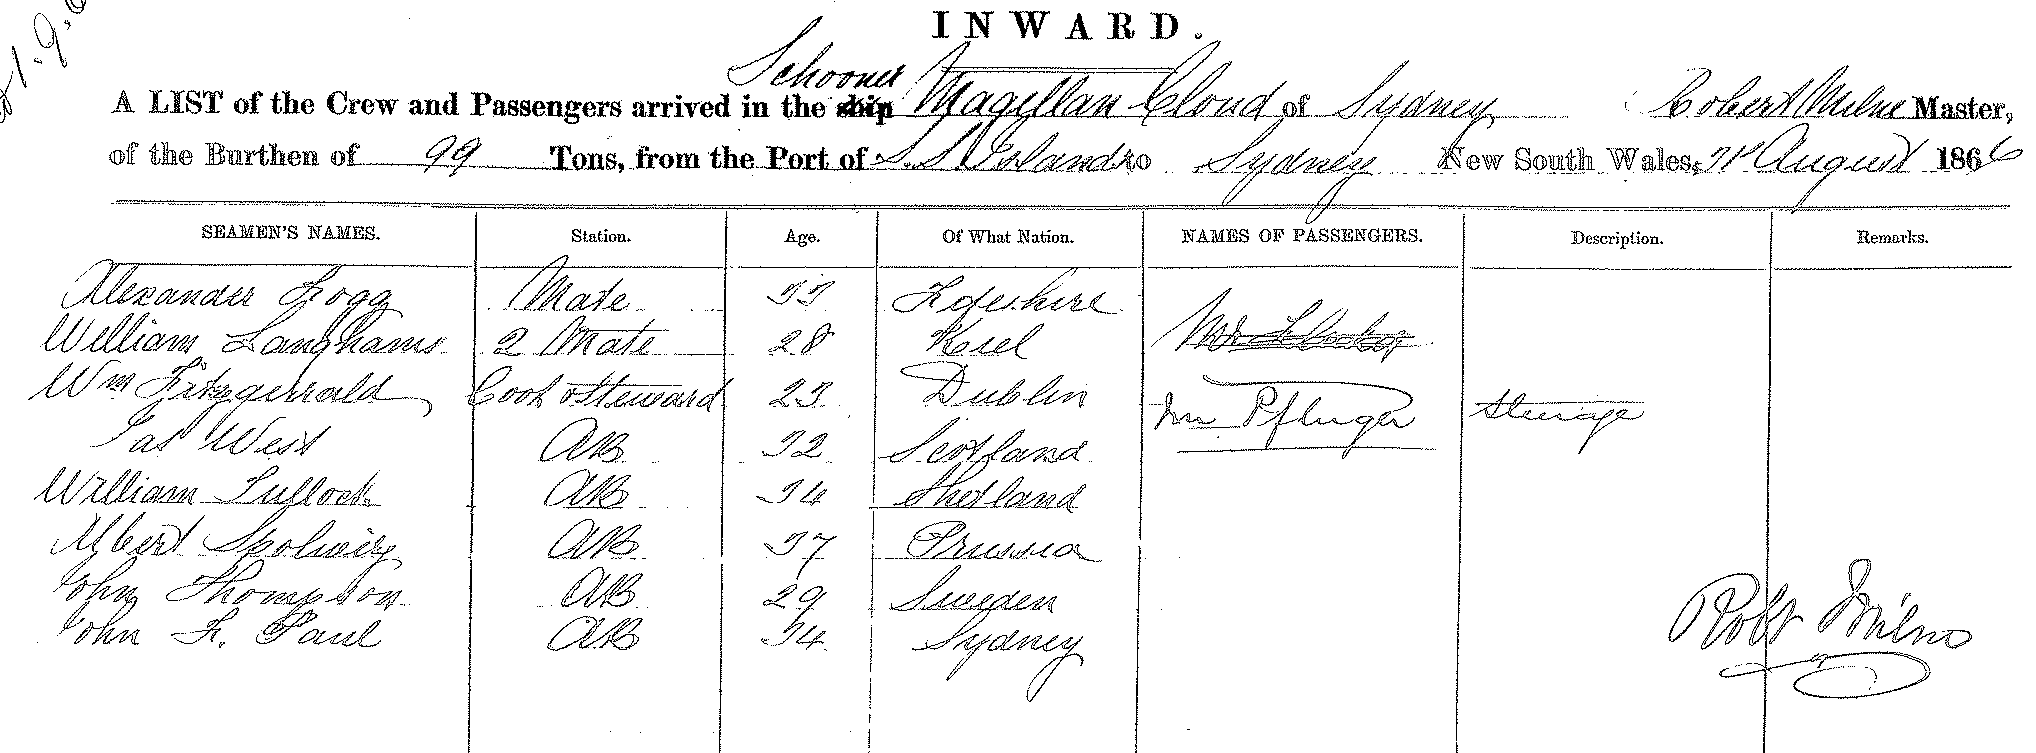 INWARD.
Schooner
A LIST of the Crew and Passengers arrived in the ship Magellan Cloud of Sydney Robert Milne Master,
of the Burthen of 99 Tons, from the Port of S. S. Islands to Sydney New South Wales, 31st August 1866
SEAMEN'S NAMES. Station. Age. Of What Nation. NAMES OF PASSENGERS. Description. Remarks.
Alexander Fogg Mate 33
William Langhams 2 Mate 28 Kiel Mr
Wm Fitzgerrald Cook & Steward 23 Dublin Mr Pfluger Steerage
Jas West AB 32 Scotland
William Tullock AB 34 Shetland
Albert AB 37 Prussia
John Thompson AB 29 Sweden
John F. Paul AB 34 Sydney
Robt Milne